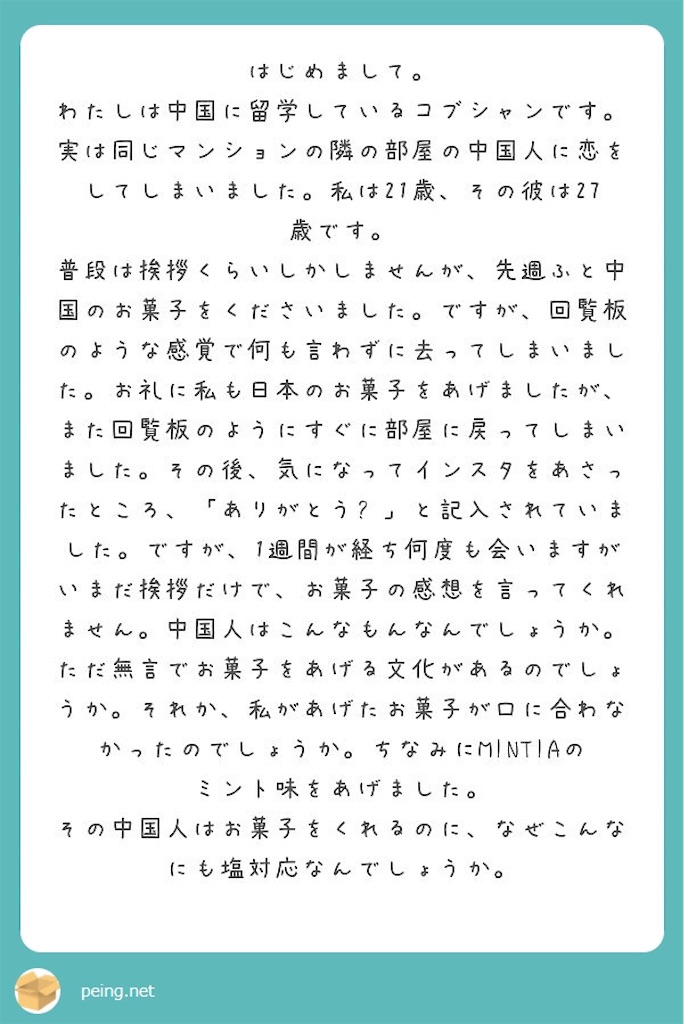 はじめまして。
わたしは中国に留学しているコブシャンです。
実は同じマンションの隣の部屋の中国人に恋を
してしまいました。私は21歳、その彼は27
歳です。
普段は挨拶くらいしかしませんが、先週ふと中
国のお菓子をくださいました。ですが、回覧板
のような感覚で何も言わずに去ってしまいまし
た。お礼に私も日本のお菓子をあげましたが、
また回覧板のようにすぐに部屋に戻ってしまい
ました。その後、気になってインスタをあさっ
たところ、「ありがとう?」と記入されていま
した。ですが、1週間が経ち何度も会いますが
いまだ挨拶だけで、お菓子の感想を言ってくれ
ません。中国人はこんなもんなんでしょうか。
ただ無言でお菓子をあげる文化があるのでしょ
うか。それか、私があげたお菓子が口に合わな
かったのでしょうか。ちなみにMINTIAの
ミント味をあげました。
その中国人はお菓子をくれるのに、なぜこんな
にも塩対応なんでしょうか。
peing.net